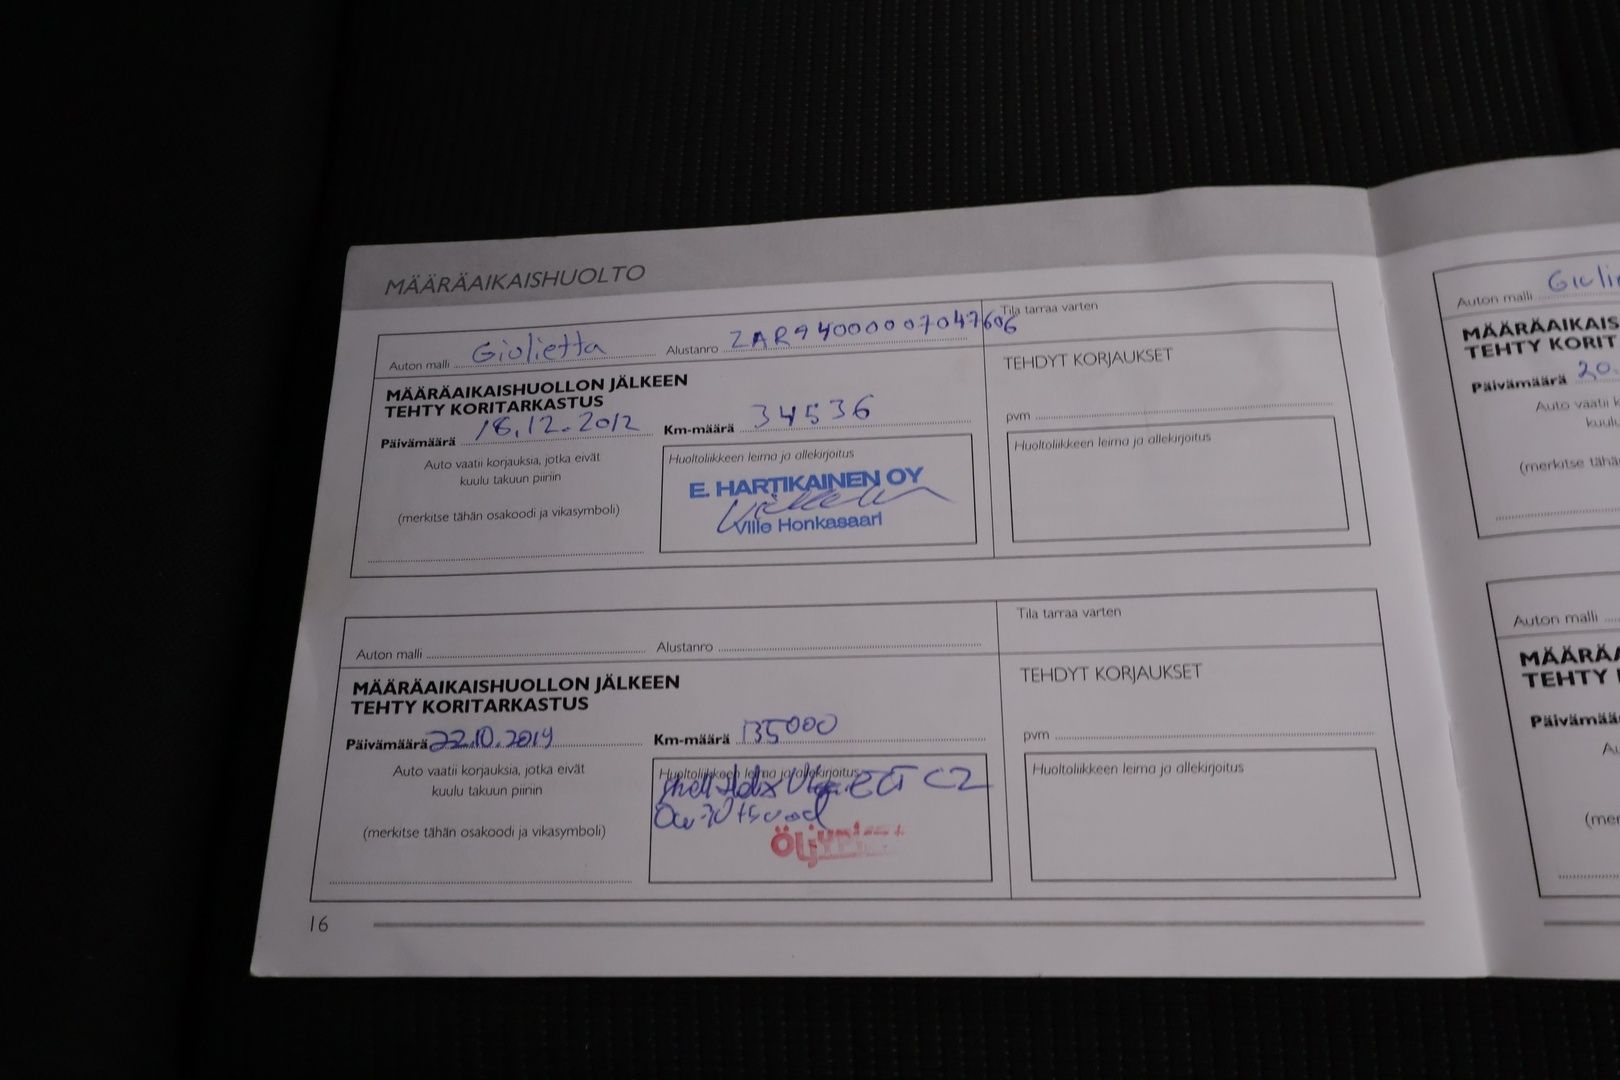 MÄÄRÄAIKAISHUOLTO
Auton malli Giulietta Alustanro ZAR94000007047606 Tila tarraa varten
MÄÄRÄAIKAISHUOLLON JÄLKEEN
TEHTY KORITARKASTUS
Päivämäärä 18.12.2012 Km-määrä 34536
Auto vaatii korjauksia, jotka eivät
kuulu takuun piiriin
(merkitse tähän osakoodi ja vikasymboli)
Huoltoliikkeen leima ja allekirjoitus
E. HARTIKAINEN OY
Ville Honkasaari
TEHDYT KORJAUKSET
pvm
Huoltoliikkeen leima ja allekirjoitus
Auton malli Alustanro Tila tarraa varten
MÄÄRÄAIKAISHUOLLON JÄLKEEN
TEHTY KORITARKASTUS
Päivämäärä 22.10.2019 Km-määrä 135000
Auto vaatii korjauksia, jotka eivät
kuulu takuun piiriin
(merkitse tähän osakoodi ja vikasymboli)
Huoltoliikkeen leima ja allekirjoitus
Shell Helix Ultra ECT C2
0w-30
TEHDYT KORJAUKSET
pvm
Huoltoliikkeen leima ja allekirjoitus
16
Auton malli Giuli
MÄÄRÄAIKAIS
TEHTY KORIT
Päivämäärä 20.
Auto vaatii k
kuulu
(merkitse tähä
Auton malli
MÄÄRÄA
TEHTY
Päivämää
Au
(me